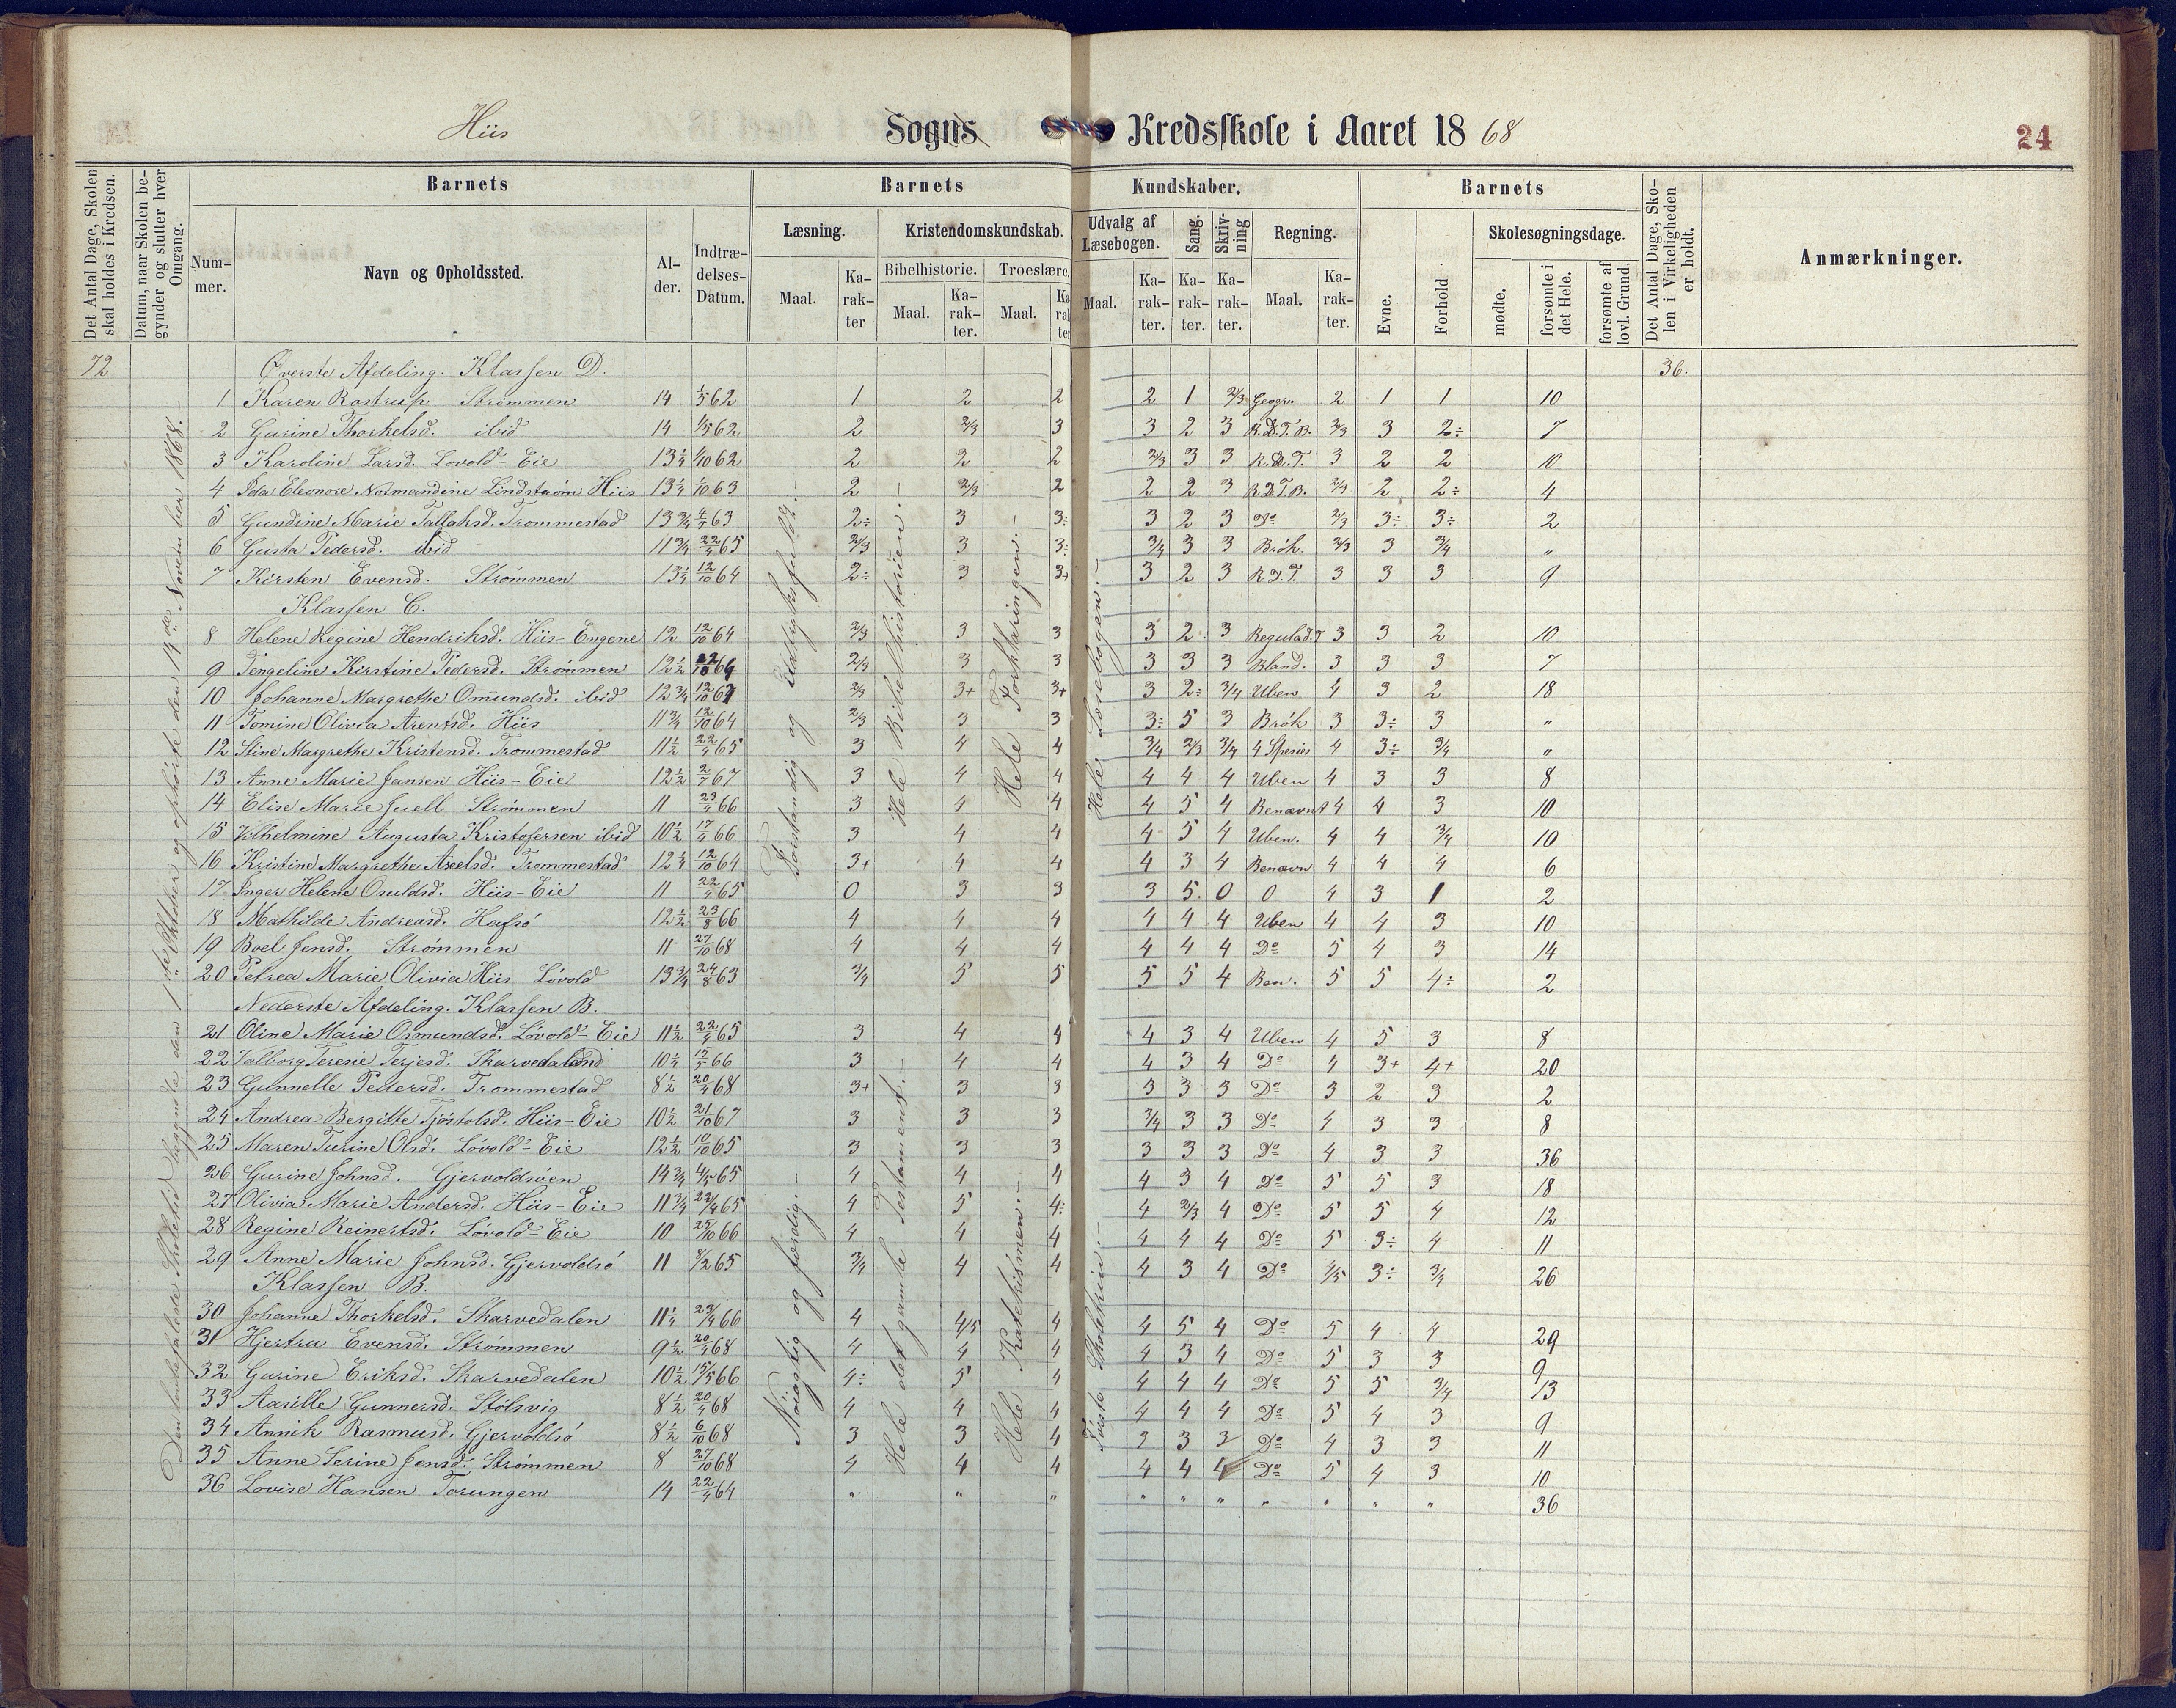 Hiis Sogns Kredsskole i Aaret 1868
24
Det Antal Dage, Skolen skal holdes i Kredsen.
Datum, naar Skolen begynder og slutter hver Omgang.
Barnets
Nummer.
Navn og Opholdssted.
Alder.
Indtrædelses-Datum.
Barnets Kundskaber.
Læsning.
Maal.
Karakter
Kristendomskundskab.
Bibelhistorie.
Maal.
Karakter.
Troeslære.
Maal.
Udvalg af Læsebogen.
Maal.
Karakter.
Sang.
Karakter.
Skrivning
Karakter.
Regning.
Maal.
Karakter.
Barnets
Evne.
Forhold
Skolesøgningsdage.
mødte.
forsømte i det Hele.
forsømte af lovl. Grund.
Det Antal Dage, Skolen i Virkeligheden er holdt.
Anmærkninger.
72 Øverste Afdeling. Klassen D. 36.
1 Karen Rostrup Strømmen 14 1/5 62 1 2 2 2 1 2/3 Geogr. 2 1 1 10
2 Gurine Thorkelsd. ibid 14 1/5 62 2 2/3 3 3 2 3 R.D.T.B. 2/3 3 2÷ 7
3 Karoline Larsd. Lovold-Eie 13 1/4 1/10 62 2 2 2 2/3 3 3 R.D.T. 3 2 2 10
4 Ida Eleonore Normandine Lindstrøm Hiis 13 1/4 1/10 63 2 2/3 2 2 2 3 R.D.T.B. 2/3 2 2÷ 4
5 Gundine Marie Tallaksd. Trommestad 13 3/4 63 2÷ 3 3÷ 3 2 3 Do 2/3 3÷ 3÷ 2
6 Gusta Pedersd. ibid 11 3/4 22/4 65 2/3 3 3÷ 3/4 3 3 Brøk. 2/3 3 3/4 "
7 Kirsten Evensd. Strømmen 13 1/4 12/10 64 2÷ 3 3+ 3 2 3 R.D.T. 3 3 3 9
Klassen C.
8 Helene Regine Hendriksd. Hiis-Engene 12 12/10 64 2/3 3 3 3 2 3 3 3 2 10
9 Tengeline Kirstine Pedersd. Strømmen 12 1/2 2/3 3 3 3 3 3 Bland. 3 3 3 7
10 Johanne Margrethe Omundsd. ibid 12 3/4 12/10 2/3 3+ 3+ 3 2÷ 3/4 Uben 4 3 2 18
11 Tomine Olivia Arentsd. Hiis 11 3/4 12/10 64 2/3 3 3 3÷ 5 3 Brøk 3 3÷ 3 "
12 Stine Margrethe Kristensd. Trommestad 11 1/2 22/4 65 3 4 4 3/4 2/3 3/4 4 Species 4 3÷ 3/4 "
13 Anne Marie Jansen Hiis-Eie 12 1/2 2/7 67 3 4 4 4 4 4 Uben 4 3 3 8
14 Elise Marie Juell Strømmen 11 23/4 66 3 4 4 4 5 4 Benævnt 4 4 3 10
15 Vilhelmine Augusta Kristofersen ibid 10 1/2 17/4 66 3 4 4 4 5 4 Uben. 4 4 3/4 10
16 Kristine Margrethe Axelsd. Trommestad 12 1/4 12/10 64 3+ 4 4 4 3 4 Benævn 4 4 4 6
17 Inger Helene Osuldsd. Hiis-Eie 11 22/4 65 0 3 3 3 5. 0 0 4 3 1 2
18 Mathilde Andreasd. Hafsø 12 1/2 23/8 66 4 4 4 4 4 4 Uben 4 4 3 10
19 Boel Jensd. Strømmen 11 27/10 68 4 4 4 4 4 4 Do 5 4 3 14
20 Petrea Marie Olivia Hiis Lövold 13 3/4 24/8 63 3/4 5 5 5 5 4 Ben. 5 5 4÷ 2
Nederste Afdeling. Klassen B.
21 Oline Marie Osmundsd. Lövold-Eie 11 1/2 22/4 65 3 4 4 4 3 4 Uben 4 5 3 8
22 Valborg Teresie Terjesd. 10 1/4 15/5 66 3 4 4 4 3 4 Do 4 3+ 4+ 20
23 Gunnelle Pedersd. Trommestad 8 1/2 20/4 68 3+ 3 3 3 3 3 Do 3 2 3 2
24 Andrea Bergitte Tjöstolsd. Hiis-Eie 10 1/2 21/10 67 3 3 3 3/4 3 3 Do 4 3 3 8
25 Maren Turine Olsd. Lövold-Eie 12 1/2 10/10 65 3 3 3 3 3 3 Do 4 3 3 36
26 Gurine Johnsd. Gjervoldsøen 14 3/4 4/5 65 4 4 4 4 3 4 Do 5 5 3 18
27 Olivia Marie Andersd. Hiis-Eie 11 3/4 22/4 65 4 5 4÷ 4 2/3 4 Do 5 5 4 12
28 Regine Reinertsd. Lövold-Eie 10 25/10 66 4 4 4 4 4 4 Do 5 3÷ 4 11
29 Anne Marie Johnsd. Gjervoldsø 11 8/2 65 3/4 4 4 4 3 4 Do 4/5 3÷ 3/4 26
Klassen B.
30 Johanne Thorkelsd. Skarvedalen 11 1/4 23/4 66 4 4/5 4 4 5 4 Do 5 4 4 29
31 Hjertru Evensd. Strømmen 9 1/2 20/4 68 4 4 4 4 3 4 Do 5 3 3 9
32 Gurine Eriksd. Skarvedalen 10 1/2 15/5 66 4÷ 5 4 4 4 4 Do 5 5 3/4 13
33 Aasille Gunnersd. Stölsvig 8 1/2 20/4 68 4 4 4 4 4 4 Do 5 4 3 9
34 Annik Rasmusd. Gjervoldsø 8 1/2 6/10 68 3 3 4 3 3 3 Do 4 3 3 11
35 Anne Serine Jensd. Strømmen 8 27/10 68 4 4 4 4 4 4 Do 5 4 3 10
36 Lovise Hansen Torungen 14 22/4 64 " " " " " " " " " " 36
Den befalede Skoletid begyndte den 1ste Oktober og ophørte den 14de November 1868.-
Forstandig og
Nöiagtig og færdig.-
Hele Bibelhistorien.-
Hele det gamle Testament.
Hele Forklaringen.-
Hele Katekismen.-
Hele Læsebogen.-
Første Skoletrin.-